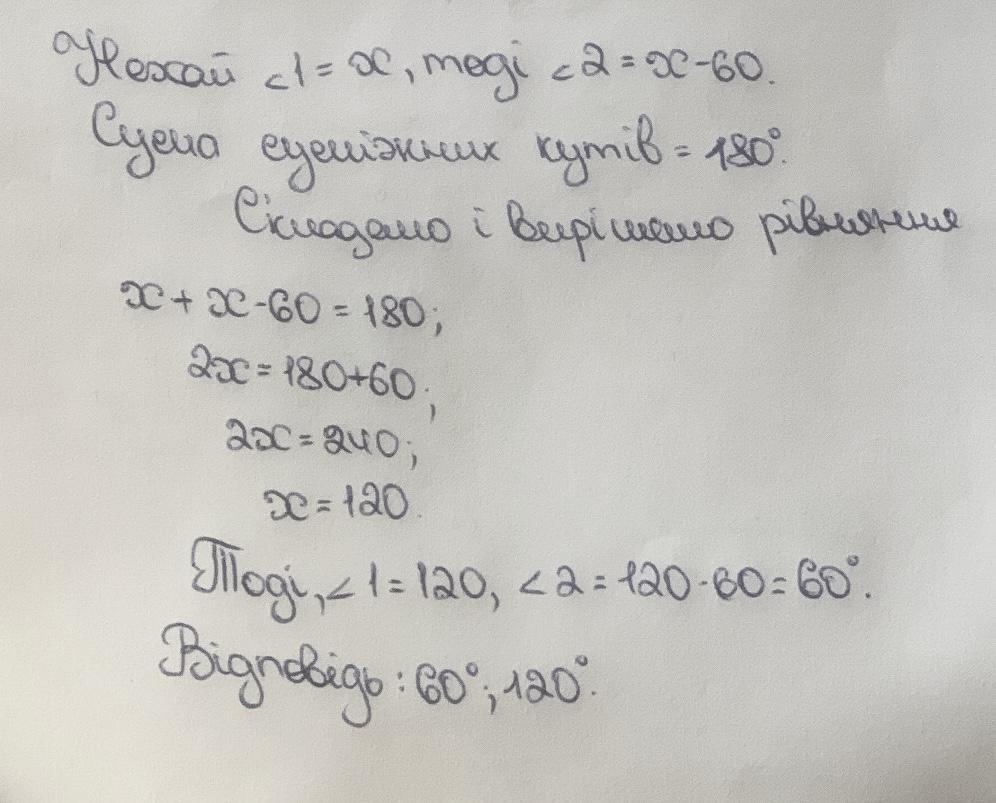 Нехай <1 = x, тоді <2 = x-60.
Сума суміжних кутів = 180°.
Складемо і вирішимо рівняння
x + x-60 = 180;
2x = 180+60;
2x = 240;
x = 120.
Тоді, <1 = 120, <2 = 120-60 = 60°.
Відповідь: 60°; 120°.